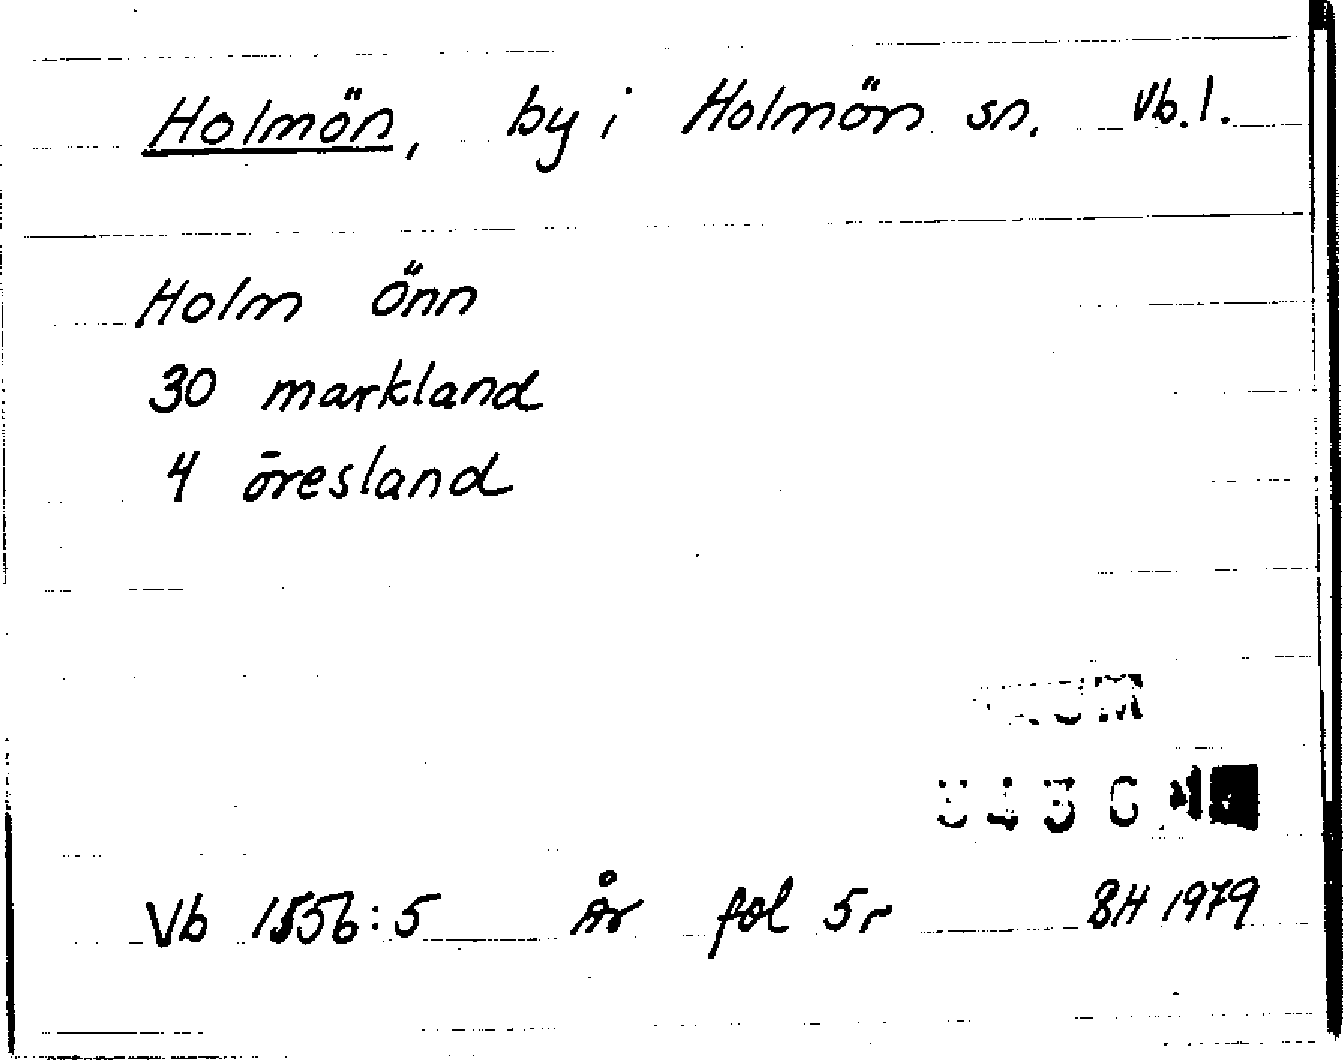 Holmön, by i Holmön sn. Vb.l.
Holm önn
30 markland
4 öresland
Vb 1556:5 År fol 5r BH 1979